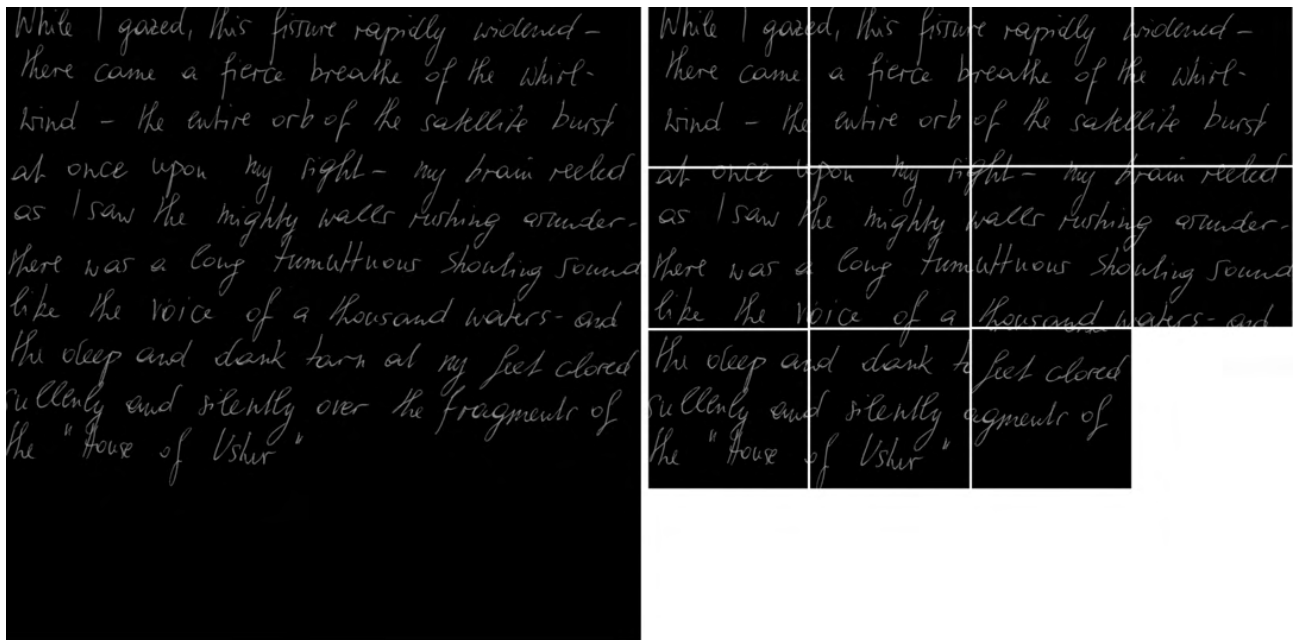 While I gazed, this fissure rapidly widened –
there came a fierce breathe of the whirl-
wind – the entire orb of the satellite burst
at once upon my sight – my brain reeled
as I saw the mighty walls rushing asunder-
there was a long tumulttuous shouting sound
like the voice of a thousand waters- and
the deep and dank tarn at my feet closed
sullenly and silently over the fragments of
the "House of Usher"
While I gazed, this fissure rapidly widened –
there came a fierce breathe of the whirl-
wind – the entire orb of the satellite burst
at once upon my sight – my brain reeled
as I saw the mighty walls rushing asunder-
there was a long tumulttuous shouting sound
like the voice of a thousand waters- and
the deep and dank t feet closed
sullenly and silently agments of
the "House of Usher"